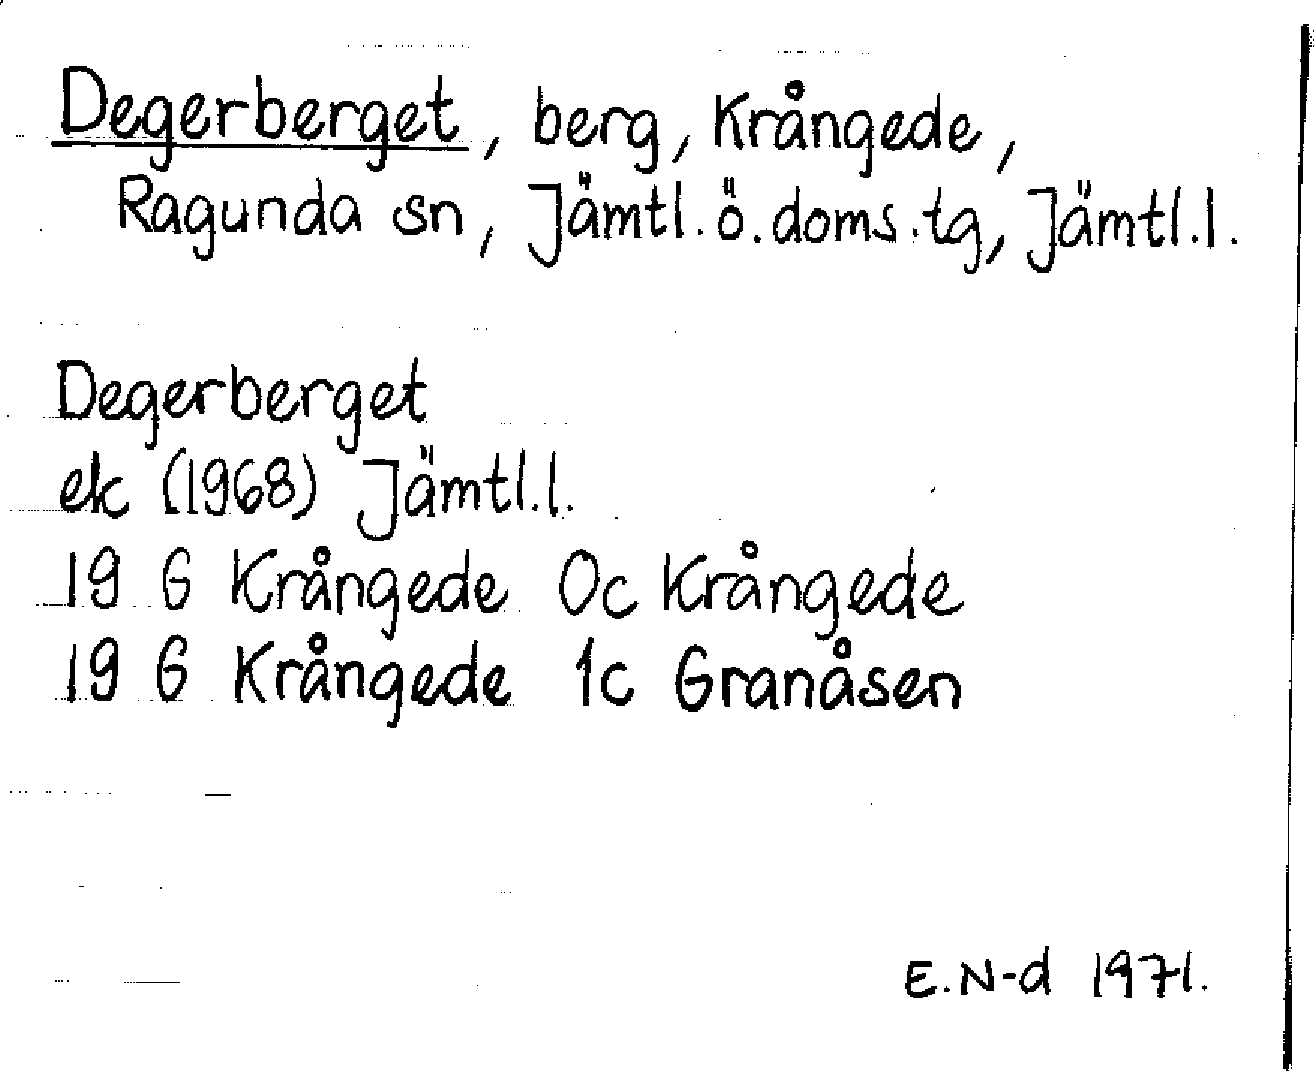 Degerberget, berg, Krångede,
Ragunda sn, Jämtl.ö.doms.tg, Jämtl.l.
Degerberget
ek (1968) Jämtl.l.
19 G Krångede 0c Krångede
19 G Krångede 1c Granåsen
E.N-d 1971.